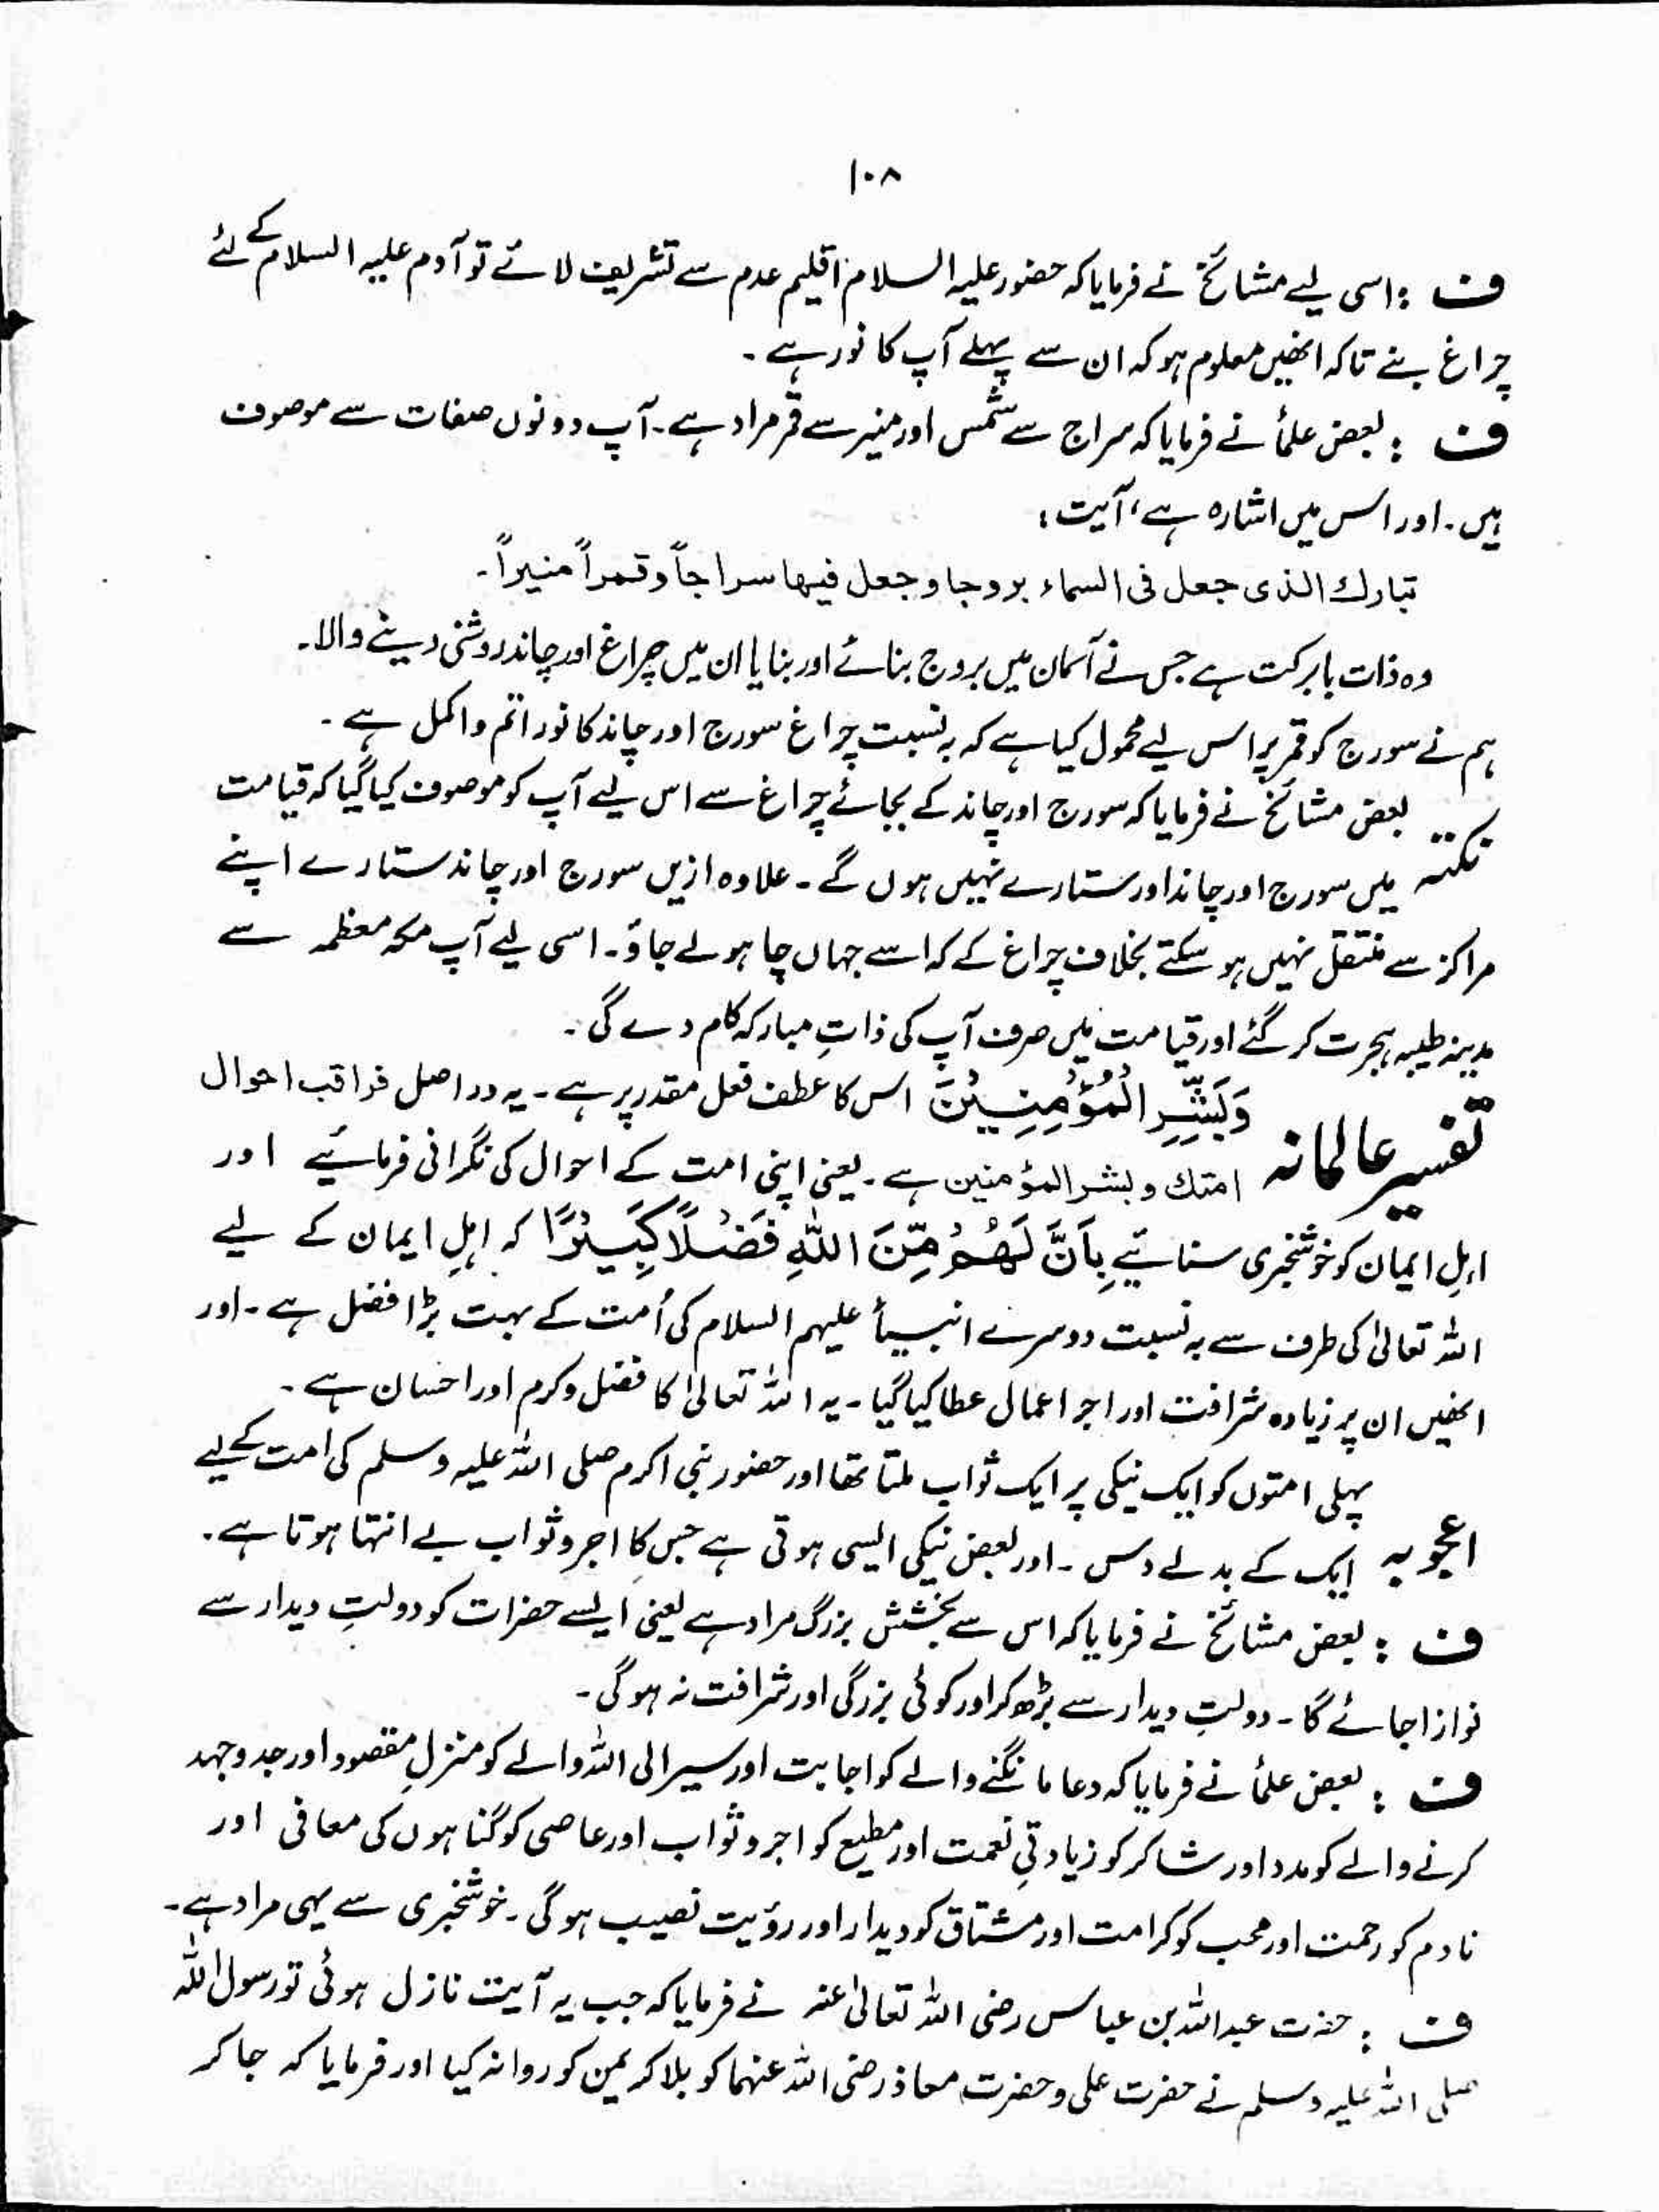 ۱۰۸
ف : اسی لیے مشائخ نے فرمایا کہ حضور علیہ السلام اقلیم عدم سے تشریف لائے تو آدم علیہ السلام کے لئے
چراغ بنے تاکہ انھیں معلوم ہو کہ ان سے پہلے آپ کا نور ہے ۔
ف : بعض علمأ نے فرمایا کہ سراج سے شمس اور منیر سے قمر مراد ہے ۔ آپ دونوں صفات سے موصوف
ہیں ۔ اور اس میں اشارہ ہے ، آیت :
تبارك الذی جعل فی السماء بروجا وجعل فیھا سراجاً وقمراً منیراً ۔
وہ ذات بابرکت ہے جس نے آسمان میں بروج بنائے اور بنایا ان میں چراغ اور چاند روشنی دینے والا ۔
ہم نے سورج کو قمر پر اس لیے محمول کیا ہے کہ بہ نسبت چراغ سورج اور چاند کا نور اتم و اکمل ہے ۔
بعض مشائخ نے فرمایا کہ سورج اور چاند کے بجائے چراغ سے اس لیے آپ کو موصوف کیا گیا کہ قیامت
نکتہ میں سورج اور چاند اور ستارے نہیں ہوں گے ۔ علاوہ ازیں سورج اور چاند ستارے اپنے
مراکز سے منتقل نہیں ہو سکتے بخلاف چراغ کے کہ اسے جہاں چاہو لے جاؤ ۔ اسی لیے آپ مکہ معظمہ سے
مدینہ طیبہ ہجرت کر گئے اور قیامت میں صرف آپ کی ذاتِ مبارکہ کام دے گی ۔
تفسیر عالمانہ وَبَشِّرِ الْمُؤْمِنِیْنَ اس کا عطف فعل مقدر پر ہے ۔ یہ در اصل فراقب احوال
امتك وبشر المؤمنین ہے ۔ یعنی اپنی امت کے احوال کی نگرانی فرمائیے اور
اہلِ ایمان کو خوشخبری سنائیے بِاَنَّ لَھُمْ مِّنَ اللّٰهِ فَضْلًا كَبِيْرًا کہ اہلِ ایمان کے لیے
اللہ تعالیٰ کی طرف سے بہ نسبت دوسرے انبیأ علیہم السلام کی اُمت کے بہت بڑا فضل ہے ۔ اور
انھیں ان پر زیادہ شرافت اور اجر اعمال عطا کیا گیا ۔ یہ اللہ تعالیٰ کا فضل و کرم اور احسان ہے ۔
پہلی امتوں کو ایک نیکی پر ایک ثواب ملتا تھا اور حضور نبی اکرم صلی اللہ علیہ وسلم کی امت کے لیے
اعجوبہ ایک کے بدلے دس ۔ اور بعض نیکی ایسی ہوتی ہے جس کا اجر و ثواب بے انتہا ہوتا ہے ۔
ف : بعض مشائخ نے فرمایا کہ اس سے بخشش بزرگ مراد ہے یعنی ایسے حضرات کو دولتِ دیدار سے
نوازا جائے گا ۔ دولتِ دیدار سے بڑھ کر اور کوئی بزرگی اور شرافت نہ ہو گی ۔
ف : بعض علمأ نے فرمایا کہ دعا مانگنے والے کو اجابت اور سیر الی اللہ والے کو منزلِ مقصود اور جد و جہد
کرنے والے کو مدد اور شاکر کو زیادتیِ نعمت اور مطیع کو اجر و ثواب اور عاصی کو گناہوں کی معافی اور
نادم کو رحمت اور محب کو کرامت اور مشتاق کو دیدار اور رؤیت نصیب ہو گی ۔ خوشخبری سے یہی مراد ہے ۔
ف : حضرت عبداللہ بن عباس رضی اللہ تعالیٰ عنہ نے فرمایا کہ جب یہ آیت نازل ہوئی تو رسول اللہ
صلی اللہ علیہ وسلم نے حضرت علی و حضرت معاذ رضی اللہ عنہما کو بلا کر یمن کو روانہ کیا اور فرمایا کہ جا کر